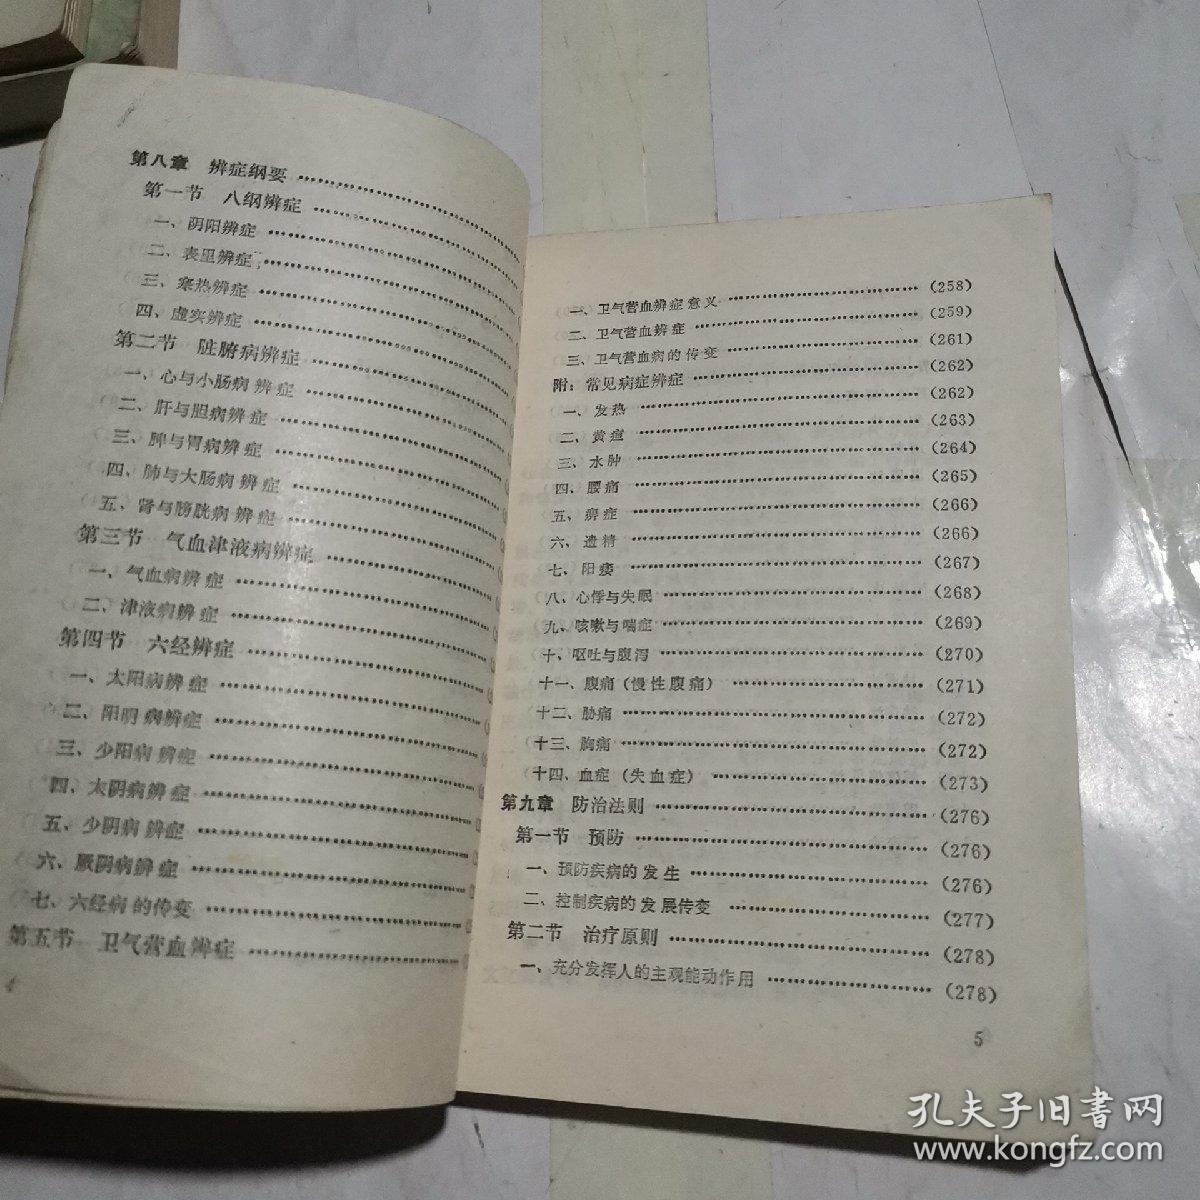 第八章 辨症纲要 ……………………
第一节 八纲辨症 ……………………
一、阴阳辨症 ……………………
二、表里辨症 ……………………
三、寒热辨症 ……………………
四、虚实辨症 ……………………
第二节 脏腑病辨症 ……………………
一、心与小肠病辨症 ……………………
二、肝与胆病辨症 ……………………
三、脾与胃病辨症 ……………………
四、肺与大肠病辨症 ……………………
五、肾与膀胱病辨症 ……………………
第三节 气血津液病辨症 ……………………
一、气血病辨症 ……………………
二、津液病辨症 ……………………
第四节 六经辨症 ……………………
一、太阳病辨症 ……………………
二、阳明病辨症 ……………………
三、少阳病辨症 ……………………
四、太阴病辨症 ……………………
五、少阴病辨症 ……………………
六、厥阴病辨症 ……………………
七、六经病的传变 ……………………
第五节 卫气营血辨症 ……………………
4
一、卫气营血辨症意义 ……………………（258）
二、卫气营血辨症 ……………………（259）
三、卫气营血病的传变 ……………………（261）
附：常见病症辨症 ……………………（262）
一、发热 ……………………（262）
二、黄疸 ……………………（263）
三、水肿 ……………………（264）
四、腰痛 ……………………（265）
五、痹症 ……………………（266）
六、遗精 ……………………（266）
七、阳痿 ……………………（267）
八、心悸与失眠 ……………………（268）
九、咳嗽与喘症 ……………………（269）
十、呕吐与腹泻 ……………………（270）
十一、腹痛（慢性腹痛） ……………………（271）
十二、胁痛 ……………………（272）
十三、胸痛 ……………………（272）
十四、血症（失血症） ……………………（273）
第九章 防治法则 ……………………（276）
第一节 预防 ……………………（276）
一、预防疾病的发生 ……………………（276）
二、控制疾病的发展传变 ……………………（277）
第二节 治疗原则 ……………………（278）
一、充分发挥人的主观能动作用 ……………………（278）
5
孔夫子旧書网
www.kongfz.com